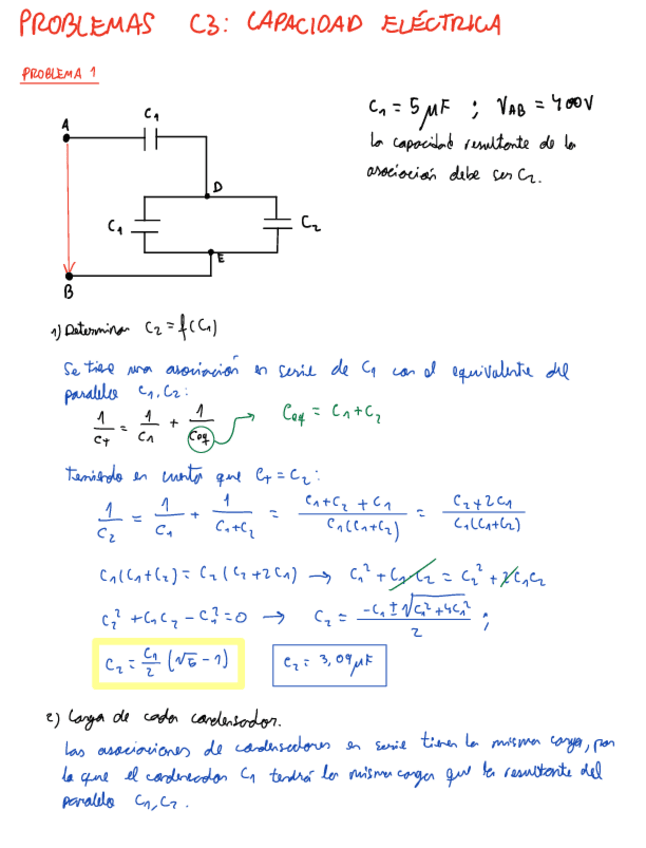 PROBLEMAS C3: CAPACIDAD ELÉCTRICA
PROBLEMA 1
C₁ = 5 μF ; V_AB = 400V
la capacidad resultante de la
asociación debe ser C₂.
A
C₁
D
C₁
C₂
E
B
1) Determinar C₂ = f(C₁)
Se tiene una asociación en serie de C₁ con el equivalente del
paralelo C₁, C₂:
1/Ct = 1/C₁ + 1/Ceq → Ceq = C₁ + C₂
Teniendo en cuenta que Ct = C₂:
1/C₂ = 1/C₁ + 1/(C₁+C₂) = (C₁+C₂+C₁)/(C₁(C₁+C₂)) = (C₂+2C₁)/(C₁(C₁+C₂))
C₁(C₁+C₂) = C₂(C₂+2C₁) → C₁² + C₁C₂ = C₂² + 2C₁C₂
C₂² + C₁C₂ - C₁² = 0 → C₂ = (-C₁ ± √(C₁²+4C₁²))/2 ;
C₂ = C₁/2 (√5 - 1) C₂ = 3,09 μF
2) Carga de cada condensador.
Las asociaciones de condensadores en serie tienen la misma carga, por
lo que el condensador C₁ tendrá la misma carga que la resultante del
paralelo C₁, C₂.